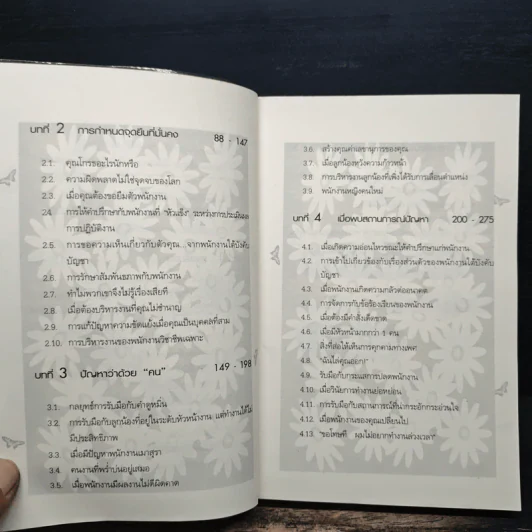 บทที่ 2 การกำหนดจุดยืนที่มั่นคง 88 - 147
2.1. คุณโกรธอะไรนักหรือ
2.2. ความผิดพลาดไม่ใช่จุดจบของโลก
2.3. เมื่อคุณต้องขอยืมตัวพนักงาน
2.4. การให้คำปรึกษากับพนักงานที่ "หัวแข็ง" ระหว่างการประเมินผล
การปฏิบัติงาน
2.5. การขอความเห็นเกี่ยวกับตัวคุณ...จากพนักงานใต้บังคับ
บัญชา
2.6. การรักษาสัมพันธภาพกับพนักงาน
2.7. ทำไมพวกเขาจึงไม่รู้เรื่องเสียที
2.8. เมื่อต้องบริหารงานที่คุณไม่ชำนาญ
2.9. การแก้ปัญหาความขัดแย้งเมื่อคุณเป็นบุคคลที่สาม
2.10. การบริหารงานของพนักงานวิชาชีพเฉพาะ
บทที่ 3 ปัญหาว่าด้วย "คน" 149 - 198
3.1. กลยุทธ์การรับมือกับคำดูหมิ่น
3.2. การรับมือกับลูกน้องที่อยู่ในระดับหัวหน้างาน แต่ทำงานได้ไม่
มีประสิทธิภาพ
3.3. เมื่อมีปัญหาพนักงานเมาสุรา
3.4. คนงานที่พร่ำบ่นอยู่เสมอ
3.5. เมื่อพนักงานมีผลงานไม่ดีผิดคาด
3.6. สร้างคุณค่าเลขานุการของคุณ
3.7. เมื่อลูกน้องหวังความก้าวหน้า
3.8. การบริหารงานลูกน้องที่เพิ่งได้รับการเลื่อนตำแหน่ง
3.9. พนักงานหญิงคนใหม่
บทที่ 4 เมื่อพบสถานการณ์ปัญหา 200 - 275
4.1. เมื่อเกิดความอ่อนไหวขณะให้คำปรึกษาแก่พนักงาน
4.2. การเข้าไปเกี่ยวข้องกับเรื่องส่วนตัวของพนักงานใต้บังคับ
บัญชา
4.3. เมื่อพนักงานเกิดความกลัวต่ออนาคต
4.4. การจัดการกับข้อร้องเรียนของพนักงาน
4.5. เมื่อต้องมีคำสั่งเด็ดขาด
4.6. เมื่อมีหัวหน้ามากกว่า 1 คน
4.7. สิ่งที่ส่อให้เห็นการคุกคามทางเพศ
4.8. "ฉันไล่คุณออก!"
4.9. รับมือกับกระแสการปลดพนักงาน
4.10. เมื่อวินัยการทำงานย่อหย่อน
4.11. การรับมือกับสถานการณ์ที่น่ากระอักกระอ่วนใจ
4.12. เมื่อพนักงานของคุณเปลี่ยนไป
4.13. "ขอโทษที ผมไม่อยากทำงานล่วงเวลา"